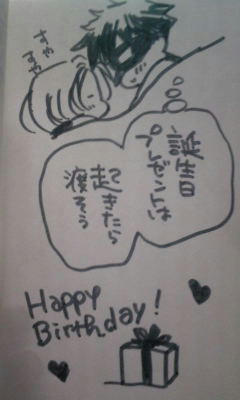 すや
すや
誕生日
プレゼントは
起きたら
渡そう
Happy
Birthday!